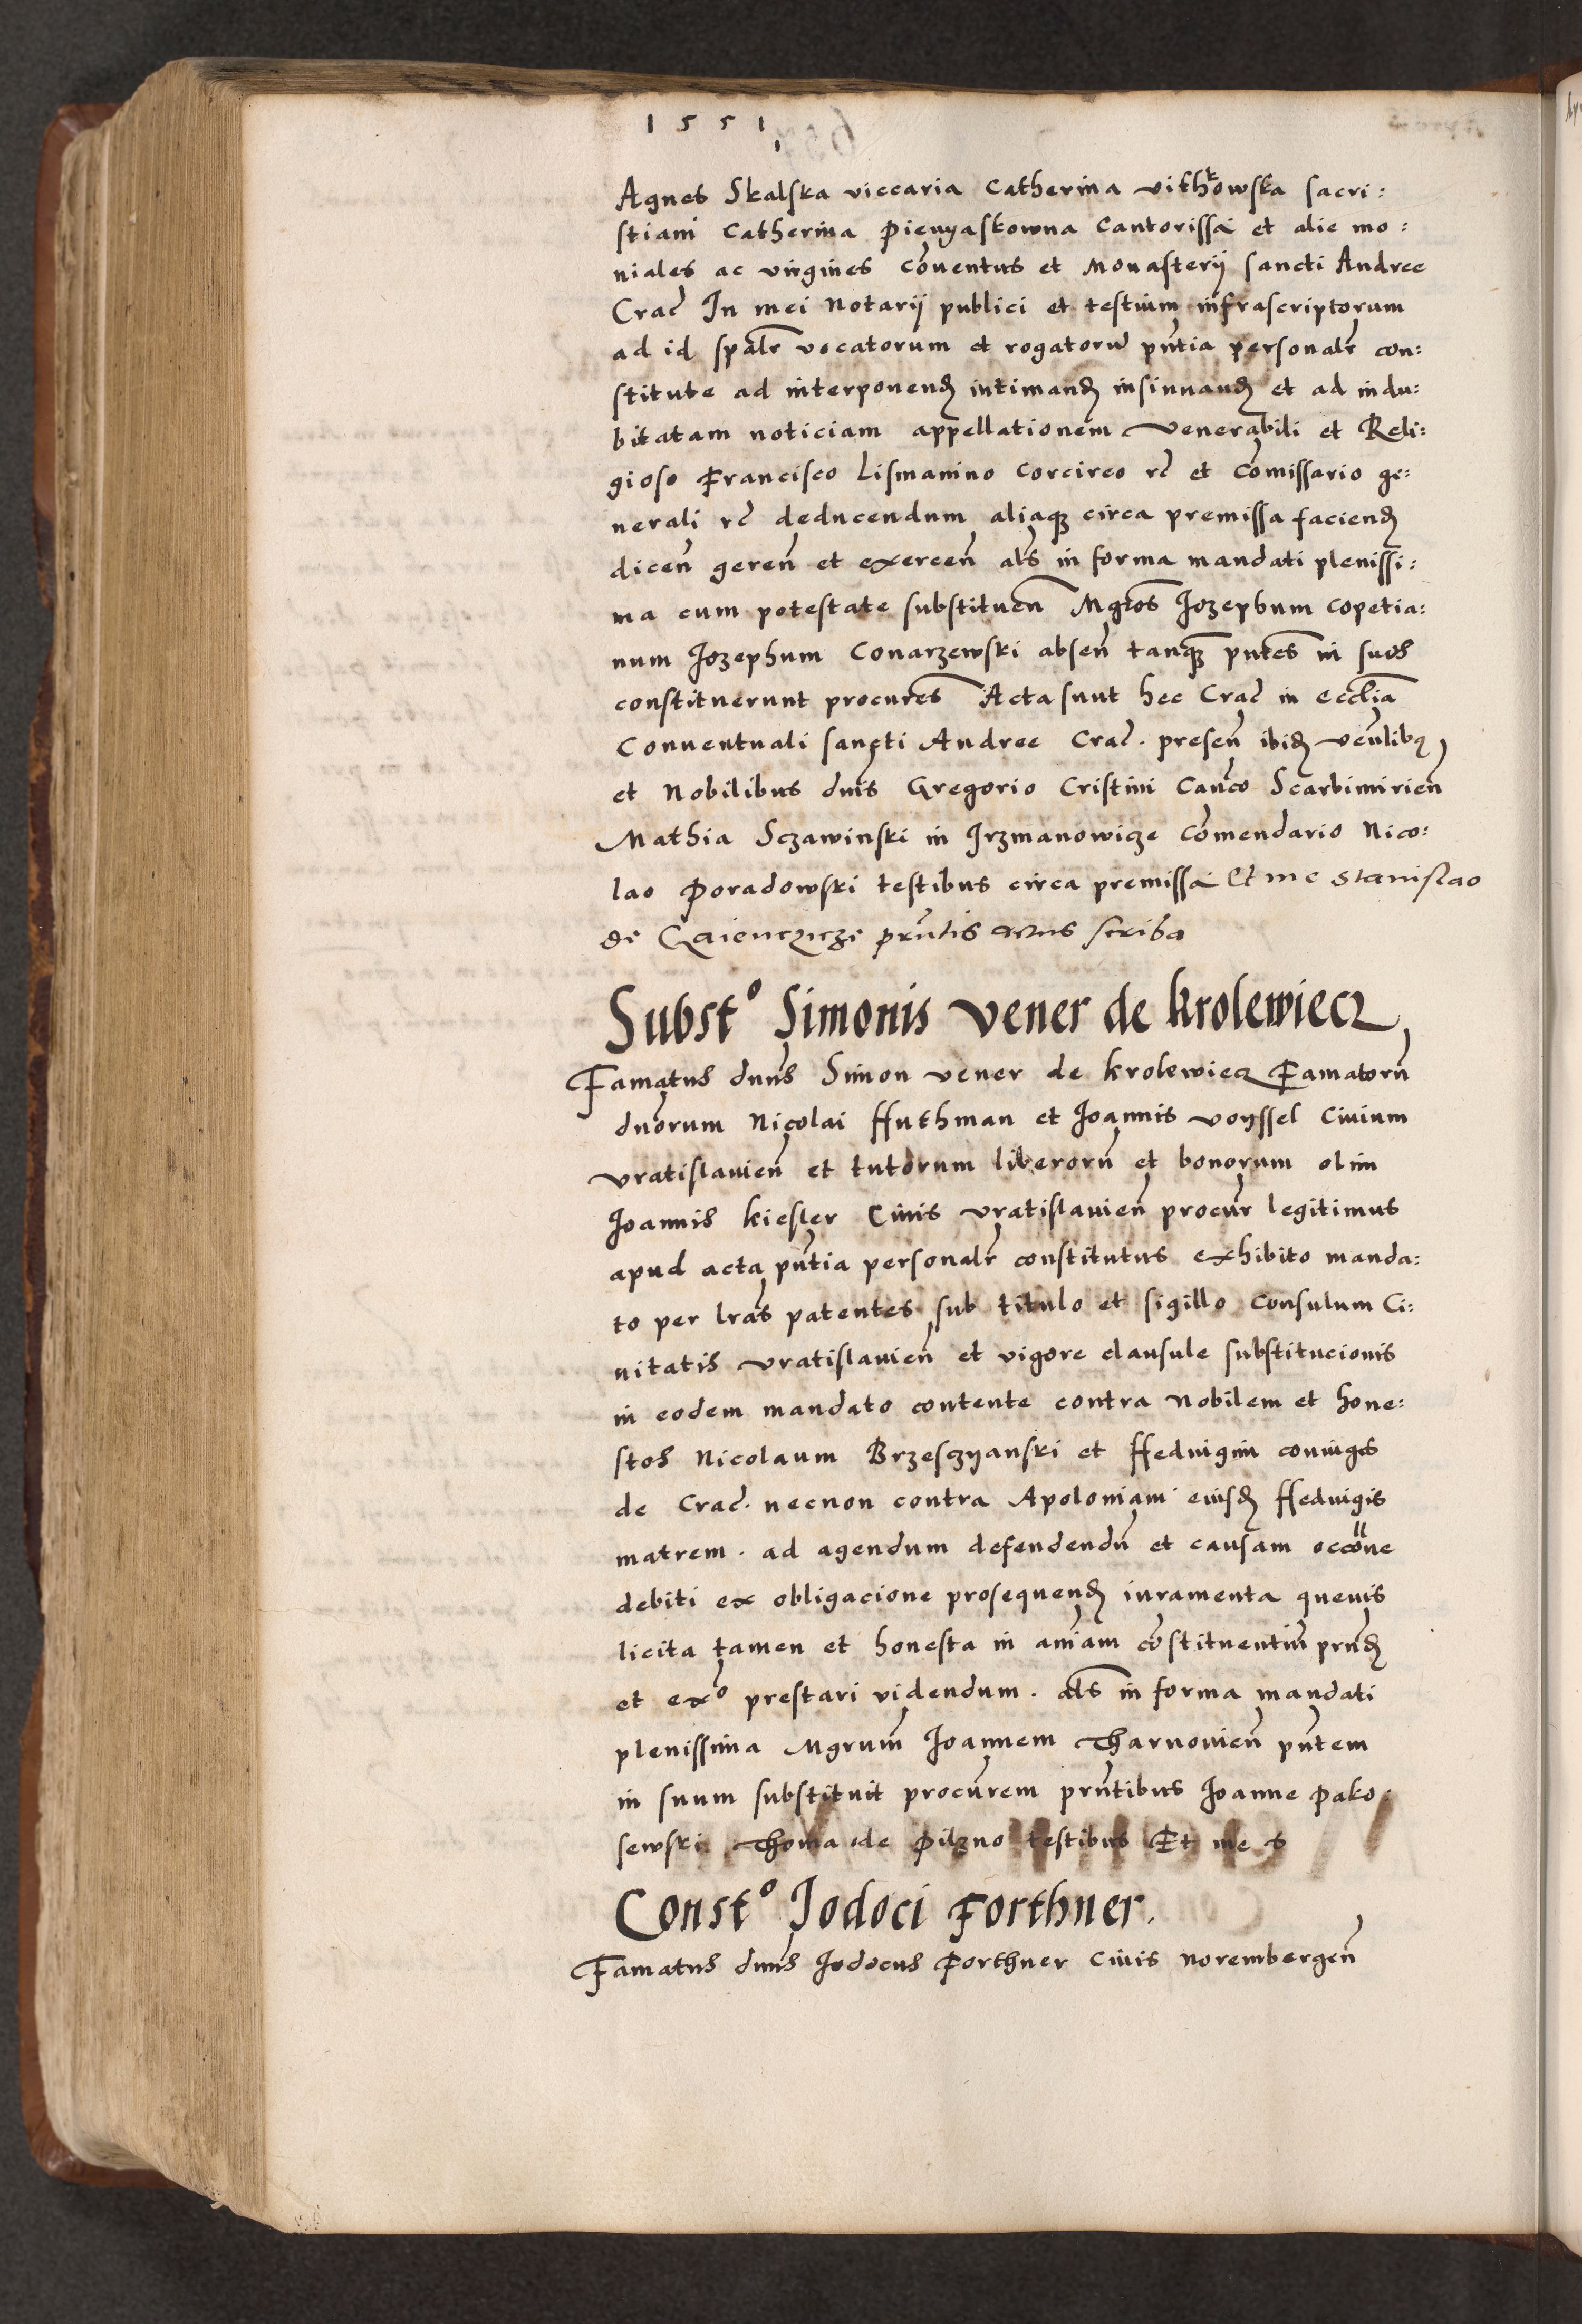 1551
Agnes Skalska viccaria Catherina vithkowska sacri:
stiam Catherina Pienyaskowna Cantorissa et alie mo:
niales ac virgines cōventus et Monasterij sancti Andree
Crac̄ In mei Notarij publici et testium infrascriptorum
ad id spālr vocatorum et rogatorū pn̄tia personalr con:
stitute ad interponend̄ intimand̄ insinuand̄ et ad indu:
bitatam noticiam appellationem venerabili et Reli:
gioso Francisco Lismanino Corcireo rc̄ et Cōmissario ge:
nerali rc̄ deducendum aliaqꝫ circa premissa faciend̄
dicen̄ geren̄ et exercen̄ als̄ in forma mandati plenissi:
ma cum potestate substituen̄ Mgros̄ Jozephum Copetia:
num Jozephum Conarzewski absen̄ tanqꝫ pn̄tes in suos
constituerunt procures̄ Acta sunt hec Crac̄ in eccl̄ia
Conventuali sancti Andree Crac̄. presen̄ ibid̄ ven̄libꝰ
et Nobilibus dn̄is Gregorio Cristini Can̄co Scarbimirien̄
Mathia Sczawinski in Jrzmanowicze Cōmendario Nico:
lao Poradowski testibus circa premissa Et me Stanislao
de Gaienczicze prn̄tis actus scriba
Substo Simonis Vener de Krolewiecz
Famatus dn̄us Simon vener de krolewiecz Famatorū
dn̄orum Nicolai Huthman et Joannis voyssel Civium
vratislavien̄ et tutorum liberorū et bonorum olim
Joannis kiesler Civis vratislavien̄ procur̄ legitimus
apud acta pn̄tia personalr constitutus exhibito manda:
to per lr̄as patentes sub titulo et sigillo Consulum Ci:
vitatis vratislavien̄ et vigore clausule substitucionis
in eodem mandato contente contra Nobilem et hone:
stos Nicolaum Brzesczyanski et Hedvigim coniuges
de Crac̄. necnon contra Apoloniam eiusd̄ Hedvigis
matrem. ad agendum defendendū et causam occōne
debiti ex obligacione prosequend̄ iuramenta quevis
licita tamen et honesta in an̄iam cōstituentiū prn̄d̄
et exo prestari videndum. als̄ in forma mandati
plenissima Mgrum̄ Joannem Tharnovien̄ pn̄tem
in suum substituit procūrem prn̄tibus Joanne Pako:
sewski Thoma de Pilzno testibus Et me S
Consto Jodoci Forthner.
Famatus dn̄us Jodocus Forthner Civis Norembergen̄